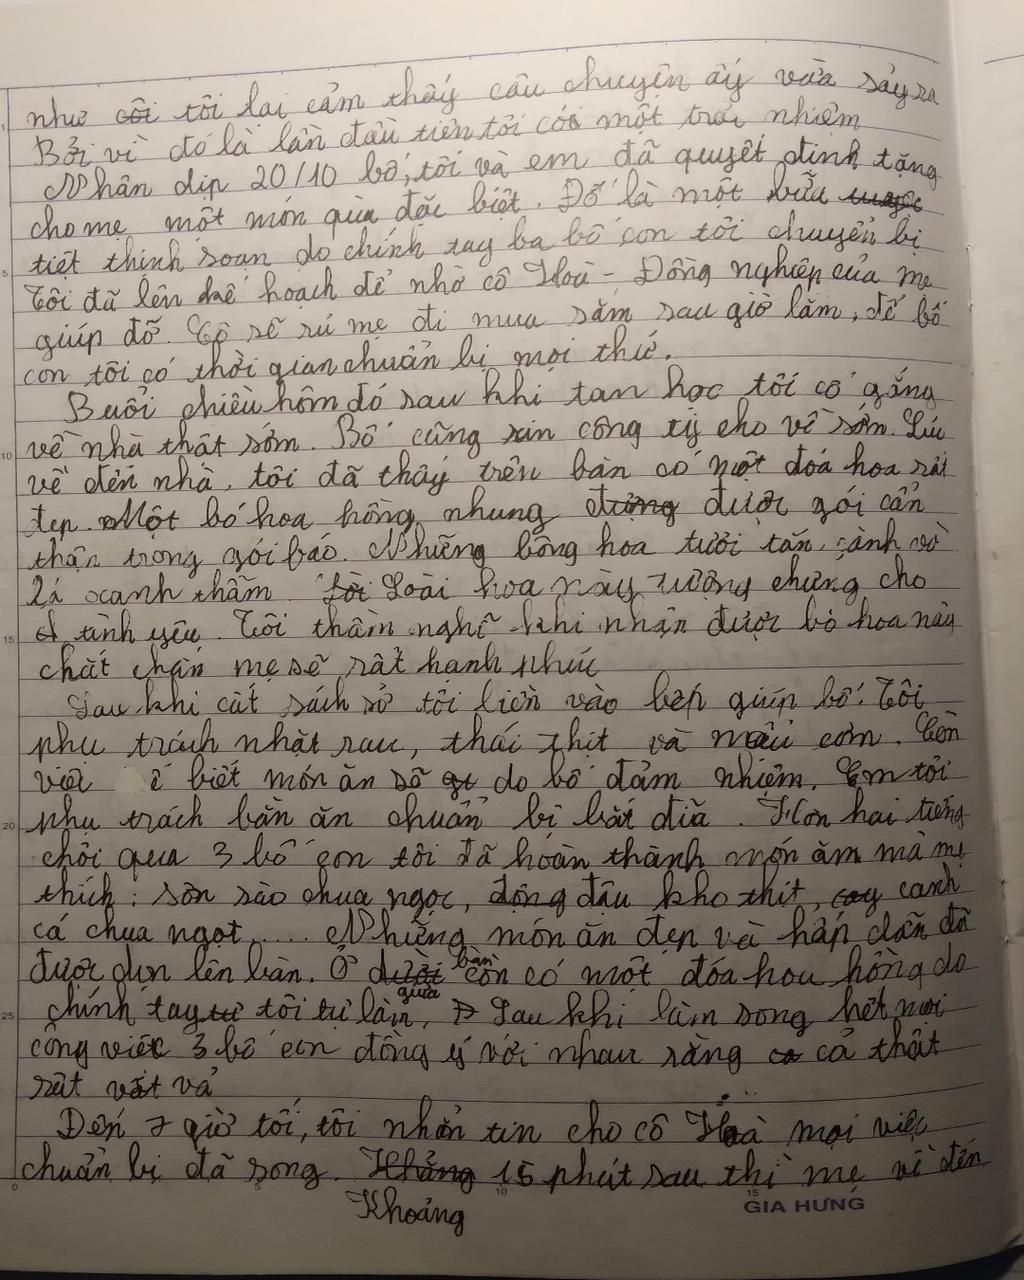 như tôi lại cảm thấy câu chuyện ấy vừa sảy ra
Bởi vì đó là lần đầu tiên tôi có một trải nhiệm
Nhân dịp 20/10 bố, tôi và em đã quyết định tặng
cho mẹ một món quà đặc biệt. Đó là một bữa
tiệt thịnh soạn do chính tay ba bố con tôi chuyển bị
Tôi đã lên kế hoạch để nhờ cô Hoà - Đồng nghiệp của mẹ
giúp đỡ. Cô sẽ rủ mẹ đi mua sắm sau giờ lăm, để bố
con tôi có thời gian chuẩn bị mọi thứ.
Buổi chiều hôm đó sau khi tan học tôi cố gắng
về nhà thật sớm. Bố cũng xin công ty cho về sớm. Lúc
về đến nhà, tôi đã thấy trên bàn có một đoá hoa rất
đẹp. Một bó hoa hồng nhung được gói cẩn
thận trong gói báo. Những bông hoa tươi tắn, cành và
lá xanh thẫm. Loài hoa này tượng chưng cho
tình yêu. Tôi thầm nghĩ khi nhận được bó hoa này
chắt chắn mẹ sẽ rất hạnh phúc
Sau khi cất sách sở tôi liền vào bếp giúp bố. Tôi
phụ trách nhặt rau, thái thịt và nấu cơm. Còn
việc biết món ăn sẽ do bố đảm nhiệm. Em tôi
phụ trách bàn ăn chuẩn bị bát đĩa. Hơn hai tiếng
chôi qua 3 bố con tôi đã hoàn thành món ăm mà mẹ
thích: sờn sào chua ngọc, đậu kho thịt, canh
cá chua ngọt,.... Những món ăn đẹp và hấp dẫn đã
được dọn lên bàn. Ở giữa bàn còn có một đóa hoa hồng do
chính tay tôi tự làm, Sau khi làm song hết mọi
công việc 3 bố con đồng ý với nhau rằng cả thật
rất vất vả
Đến 7 giờ tối, tôi nhắn tin cho cô Hoà mọi việc
chuẩn bị đã song. Khoảng 15 phút sau thì mẹ về đến
GIA HƯNG